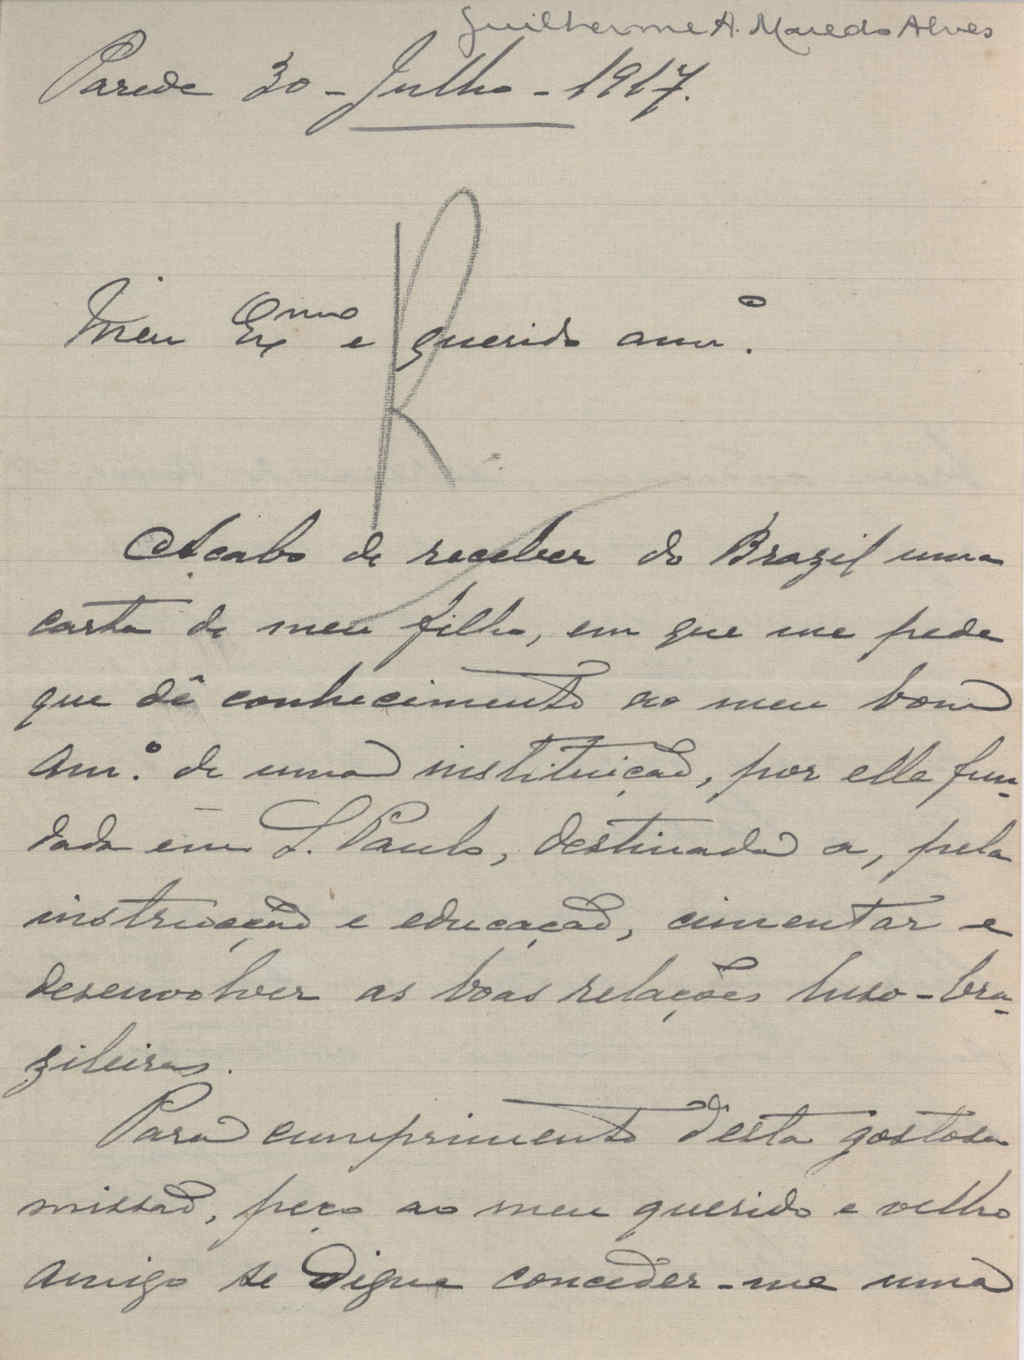 Guilherme A. Macedo Alves
Parede 30 - Julho - 1917.
R
Meu Exmo e querido amº.
Acabo de receber do Brazil uma
carta de meu filho, em que me pede
que dê conhecimento ao meu bom
amº. de uma instituição, por elle fun-
dada em S. Paulo, destinada a, pela
instrucção e educação, cimentar e
desenvolver as boas relações luso-bra-
zileiras.
Para cumprimento desta gostosa
missão, peço ao meu querido e velho
amigo se digne conceder-me uma